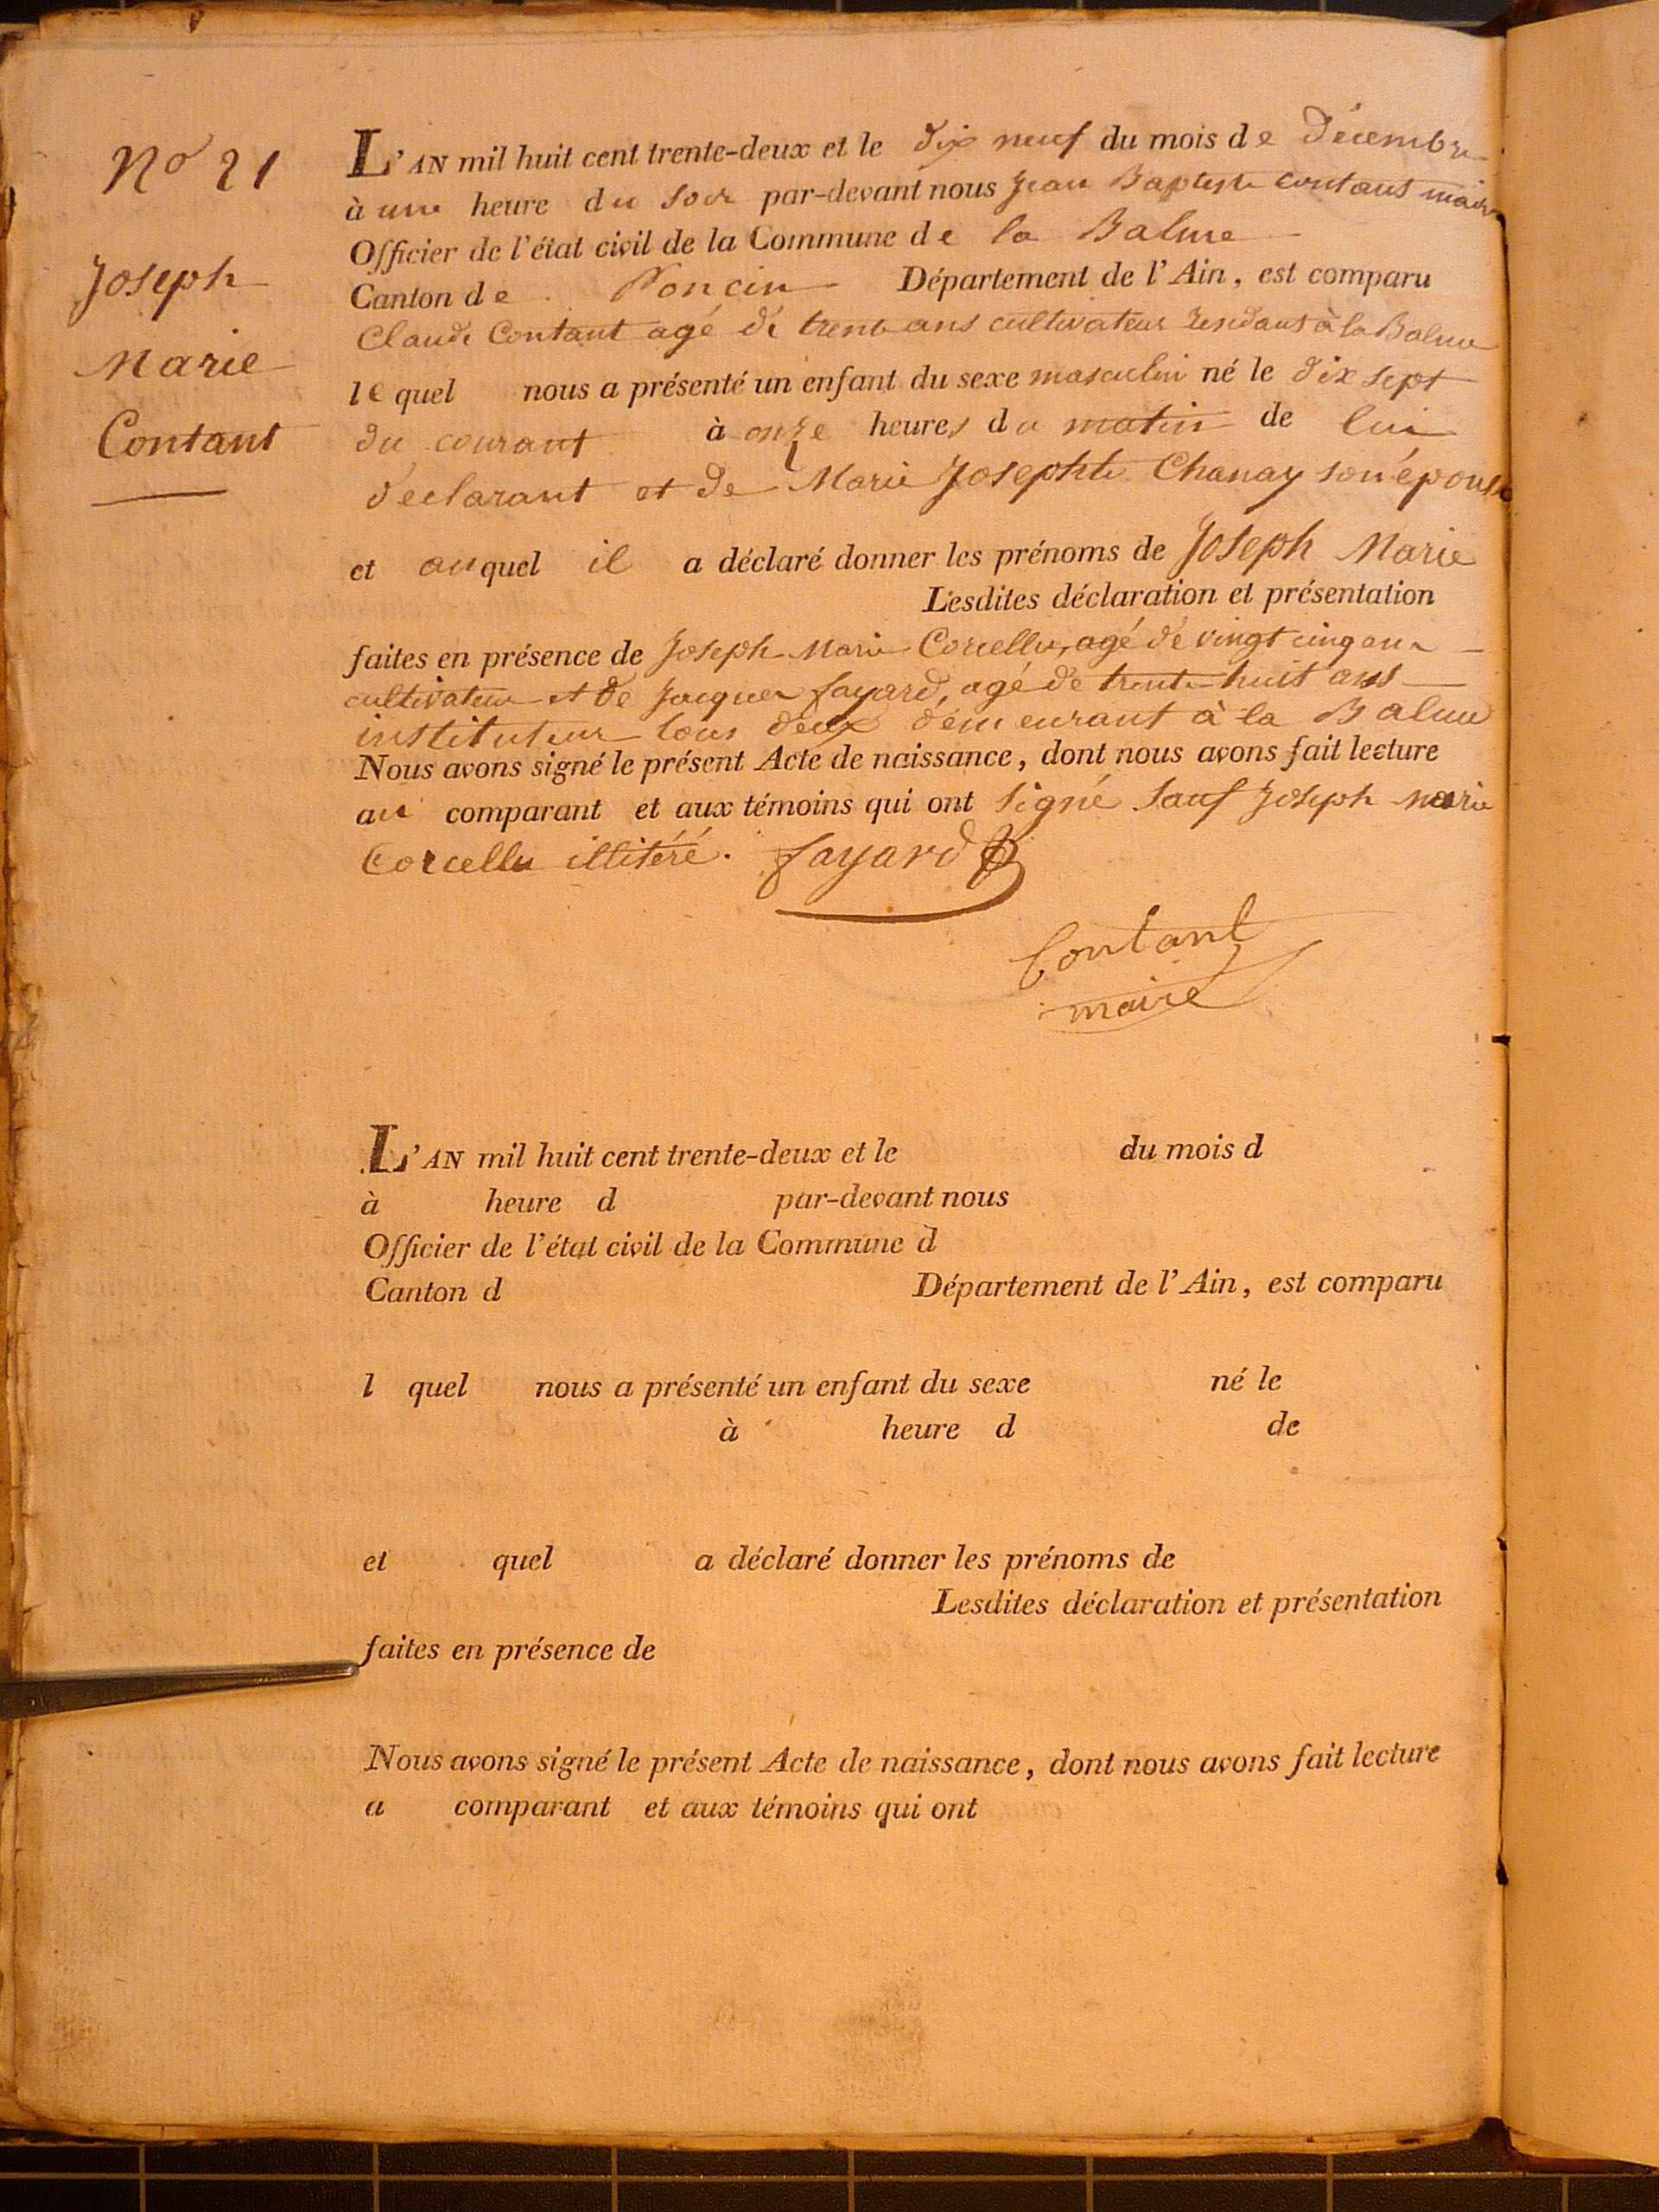 No 21
Joseph
Marie
Contant
L'AN mil huit cent trente-deux et le dix neuf du mois de Décembre
à une heure du soir par-devant nous Jean Baptiste contant maire
Officier de l'état civil de la Commune de la Balme
Canton de Poncin Département de l'Ain, est comparu
Claude Contant agé de trente ans cultivateur residant à la Balme
lequel nous a présenté un enfant du sexe masculin né le dix sept
du courant à onze heures du matin de lui
declarant et de Marie Josephte Chanay son épouse
et auquel il a déclaré donner les prénoms de Joseph Marie
Lesdites déclaration et présentation
faites en présence de Joseph Marie Corcellu, agé de vingt cinq ans
cultivateur et de Jacques fayard, agé de trente huit ans
instituteur tous deux demeurant à la Balme
Nous avons signé le présent Acte de naissance, dont nous avons fait lecture
au comparant et aux témoins qui ont signé sauf Joseph marie
Corcellu illitéré. fayard
Contant
maire
L'AN mil huit cent trente-deux et le du mois d
à heure d par-devant nous
Officier de l'état civil de la Commune d
Canton d Département de l'Ain, est comparu
l quel nous a présenté un enfant du sexe né le
à heure d de
et quel a déclaré donner les prénoms de
Lesdites déclaration et présentation
faites en présence de
Nous avons signé le présent Acte de naissance, dont nous avons fait lecture
a comparant et aux témoins qui ont